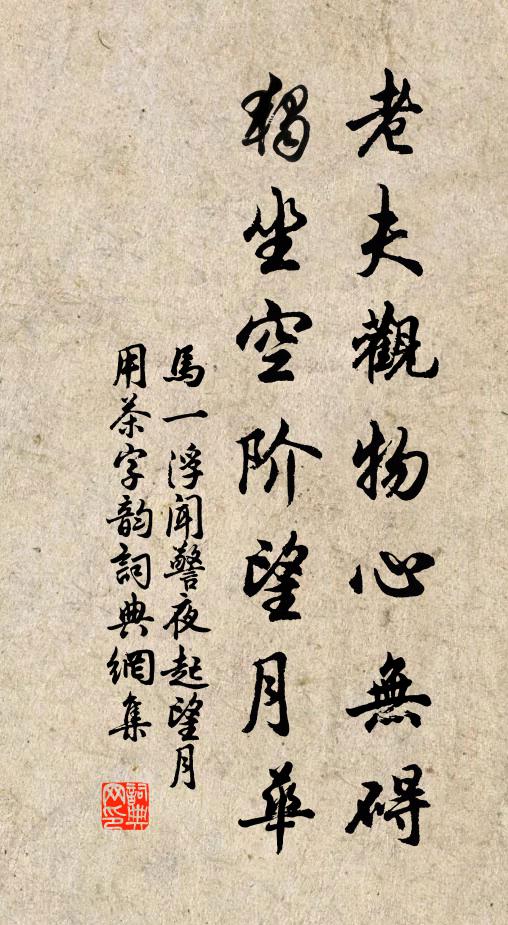 老夫觀物心無碍
獨坐空阶望月華
馬一浮聞警夜起望月
用茶字韵詞典網集
詞典
网印